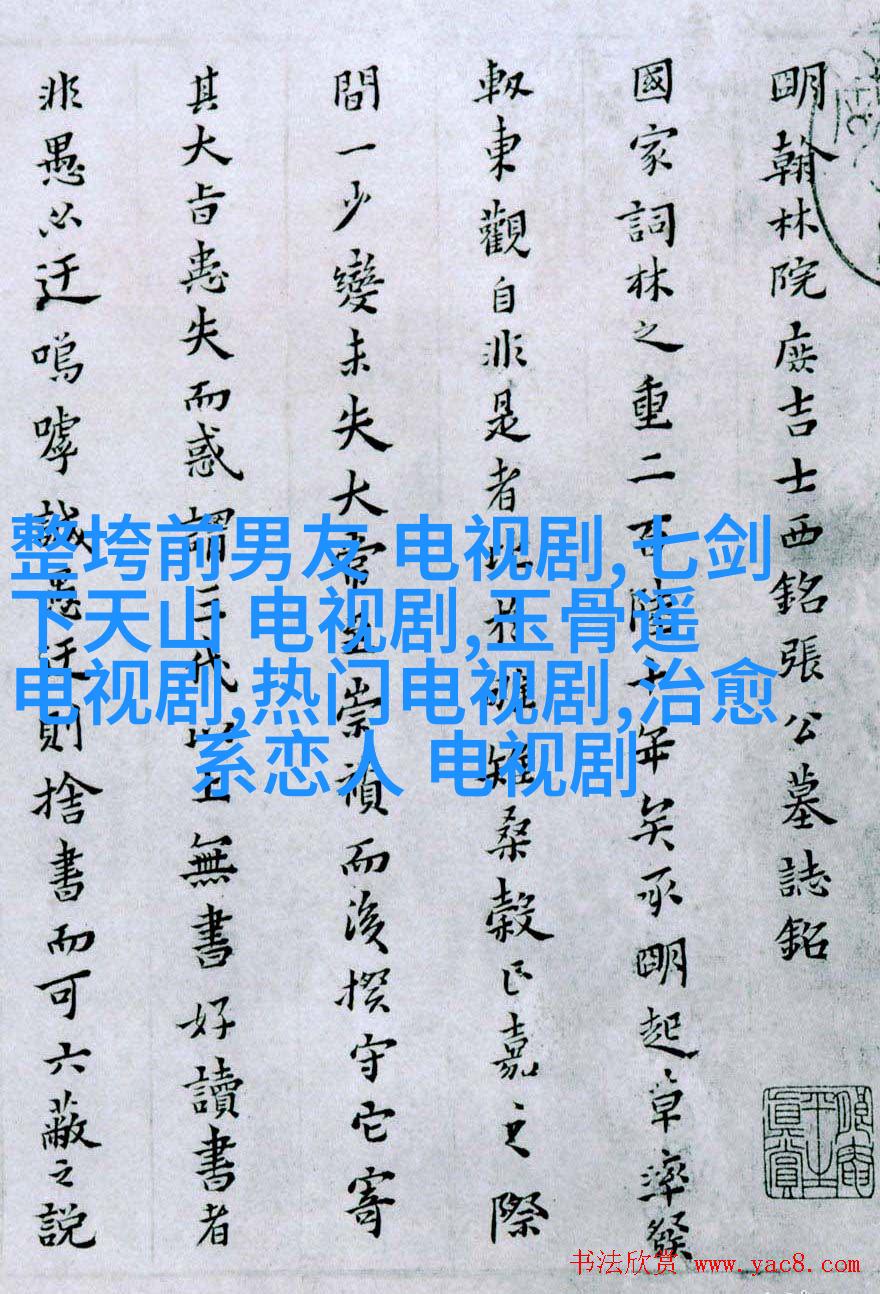 明翰林院庶吉士西銘張公墓誌銘
國家詞林之重二百陸十年矣承明起草率發
軔東觀自非是者 於雉桑穀正嘉之際
間一少變未失大常 崇禎而後揆守它寄
其大旨患失而惑謂三代以上無書好讀書者
非愚必迂嗚嘑誠愚迂則捨書而可六蔽之説
整垮前男友 电视剧,七剑
下天山 电视剧,玉骨遥
电视剧,热门电视剧,治愈
系恋人 电视剧
书法欣赏 www.yac8.com